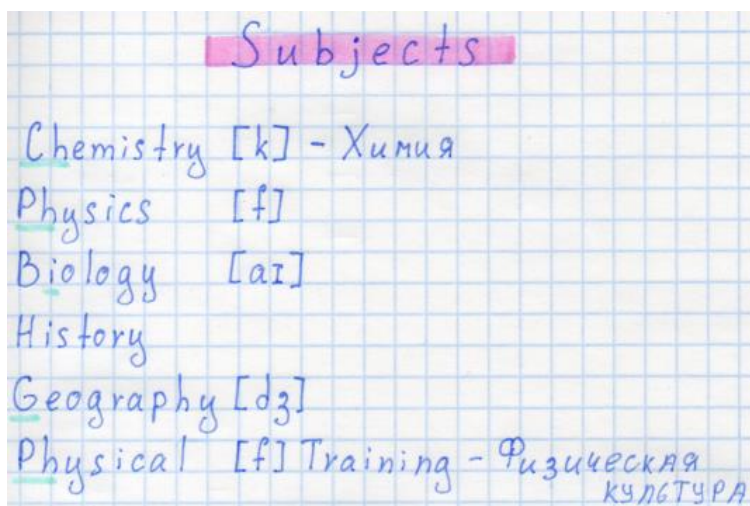 Subjects
Chemistry [k] - Химия
Physics [f]
Biology [aɪ]
History
Geography [dʒ]
Physical [f] Training - Физическая
культура